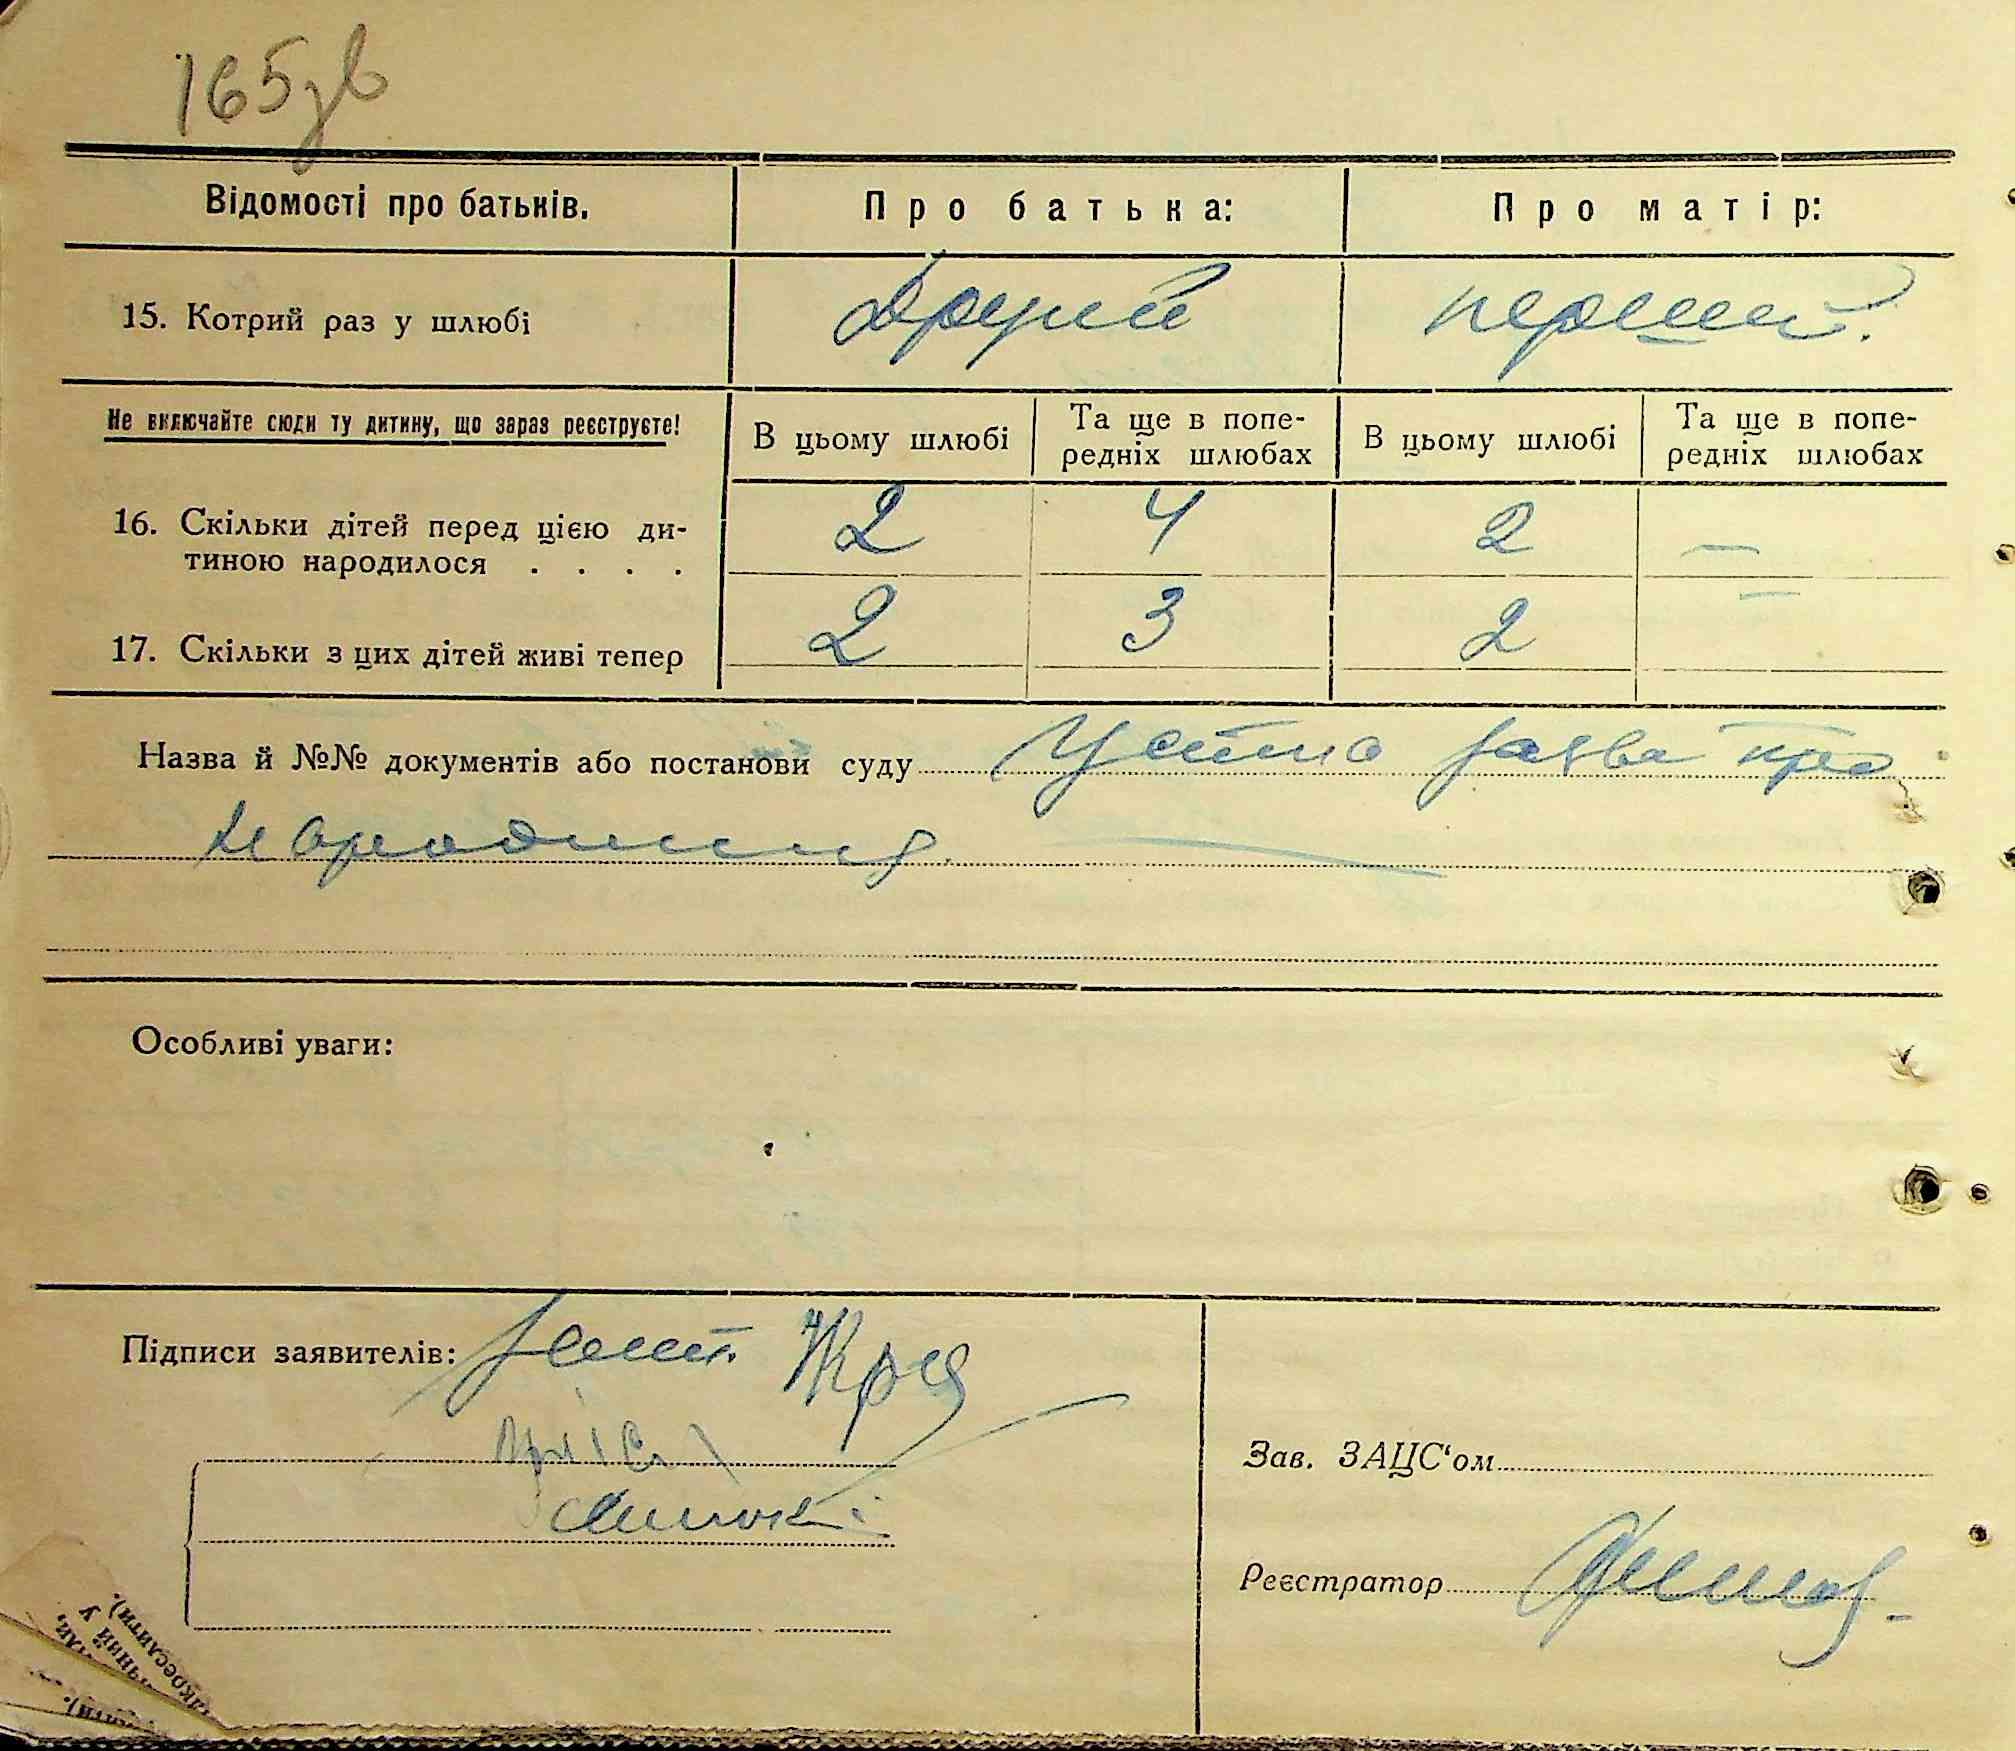 165зв
Відомості про батьків.
Про батька:
Про матір:
15. Котрий раз у шлюбі
Другий
перший.
Не включайте сюди ту дитину, що зараз реєструєте!
В цьому шлюбі
Та ще в попе-
редніх шлюбах
В цьому шлюбі
Та ще в попе-
редніх шлюбах
16. Скільки дітей перед цією ди-
тиною народилося . . . .
2
4
2
—
17. Скільки з цих дітей живі тепер
2
3
2
—
Назва й №№ документів або постанови суду Устна заява про
народження.
Особливі уваги:
Підписи заявителів:
Зав. ЗАЦС'ом
Реєстратор